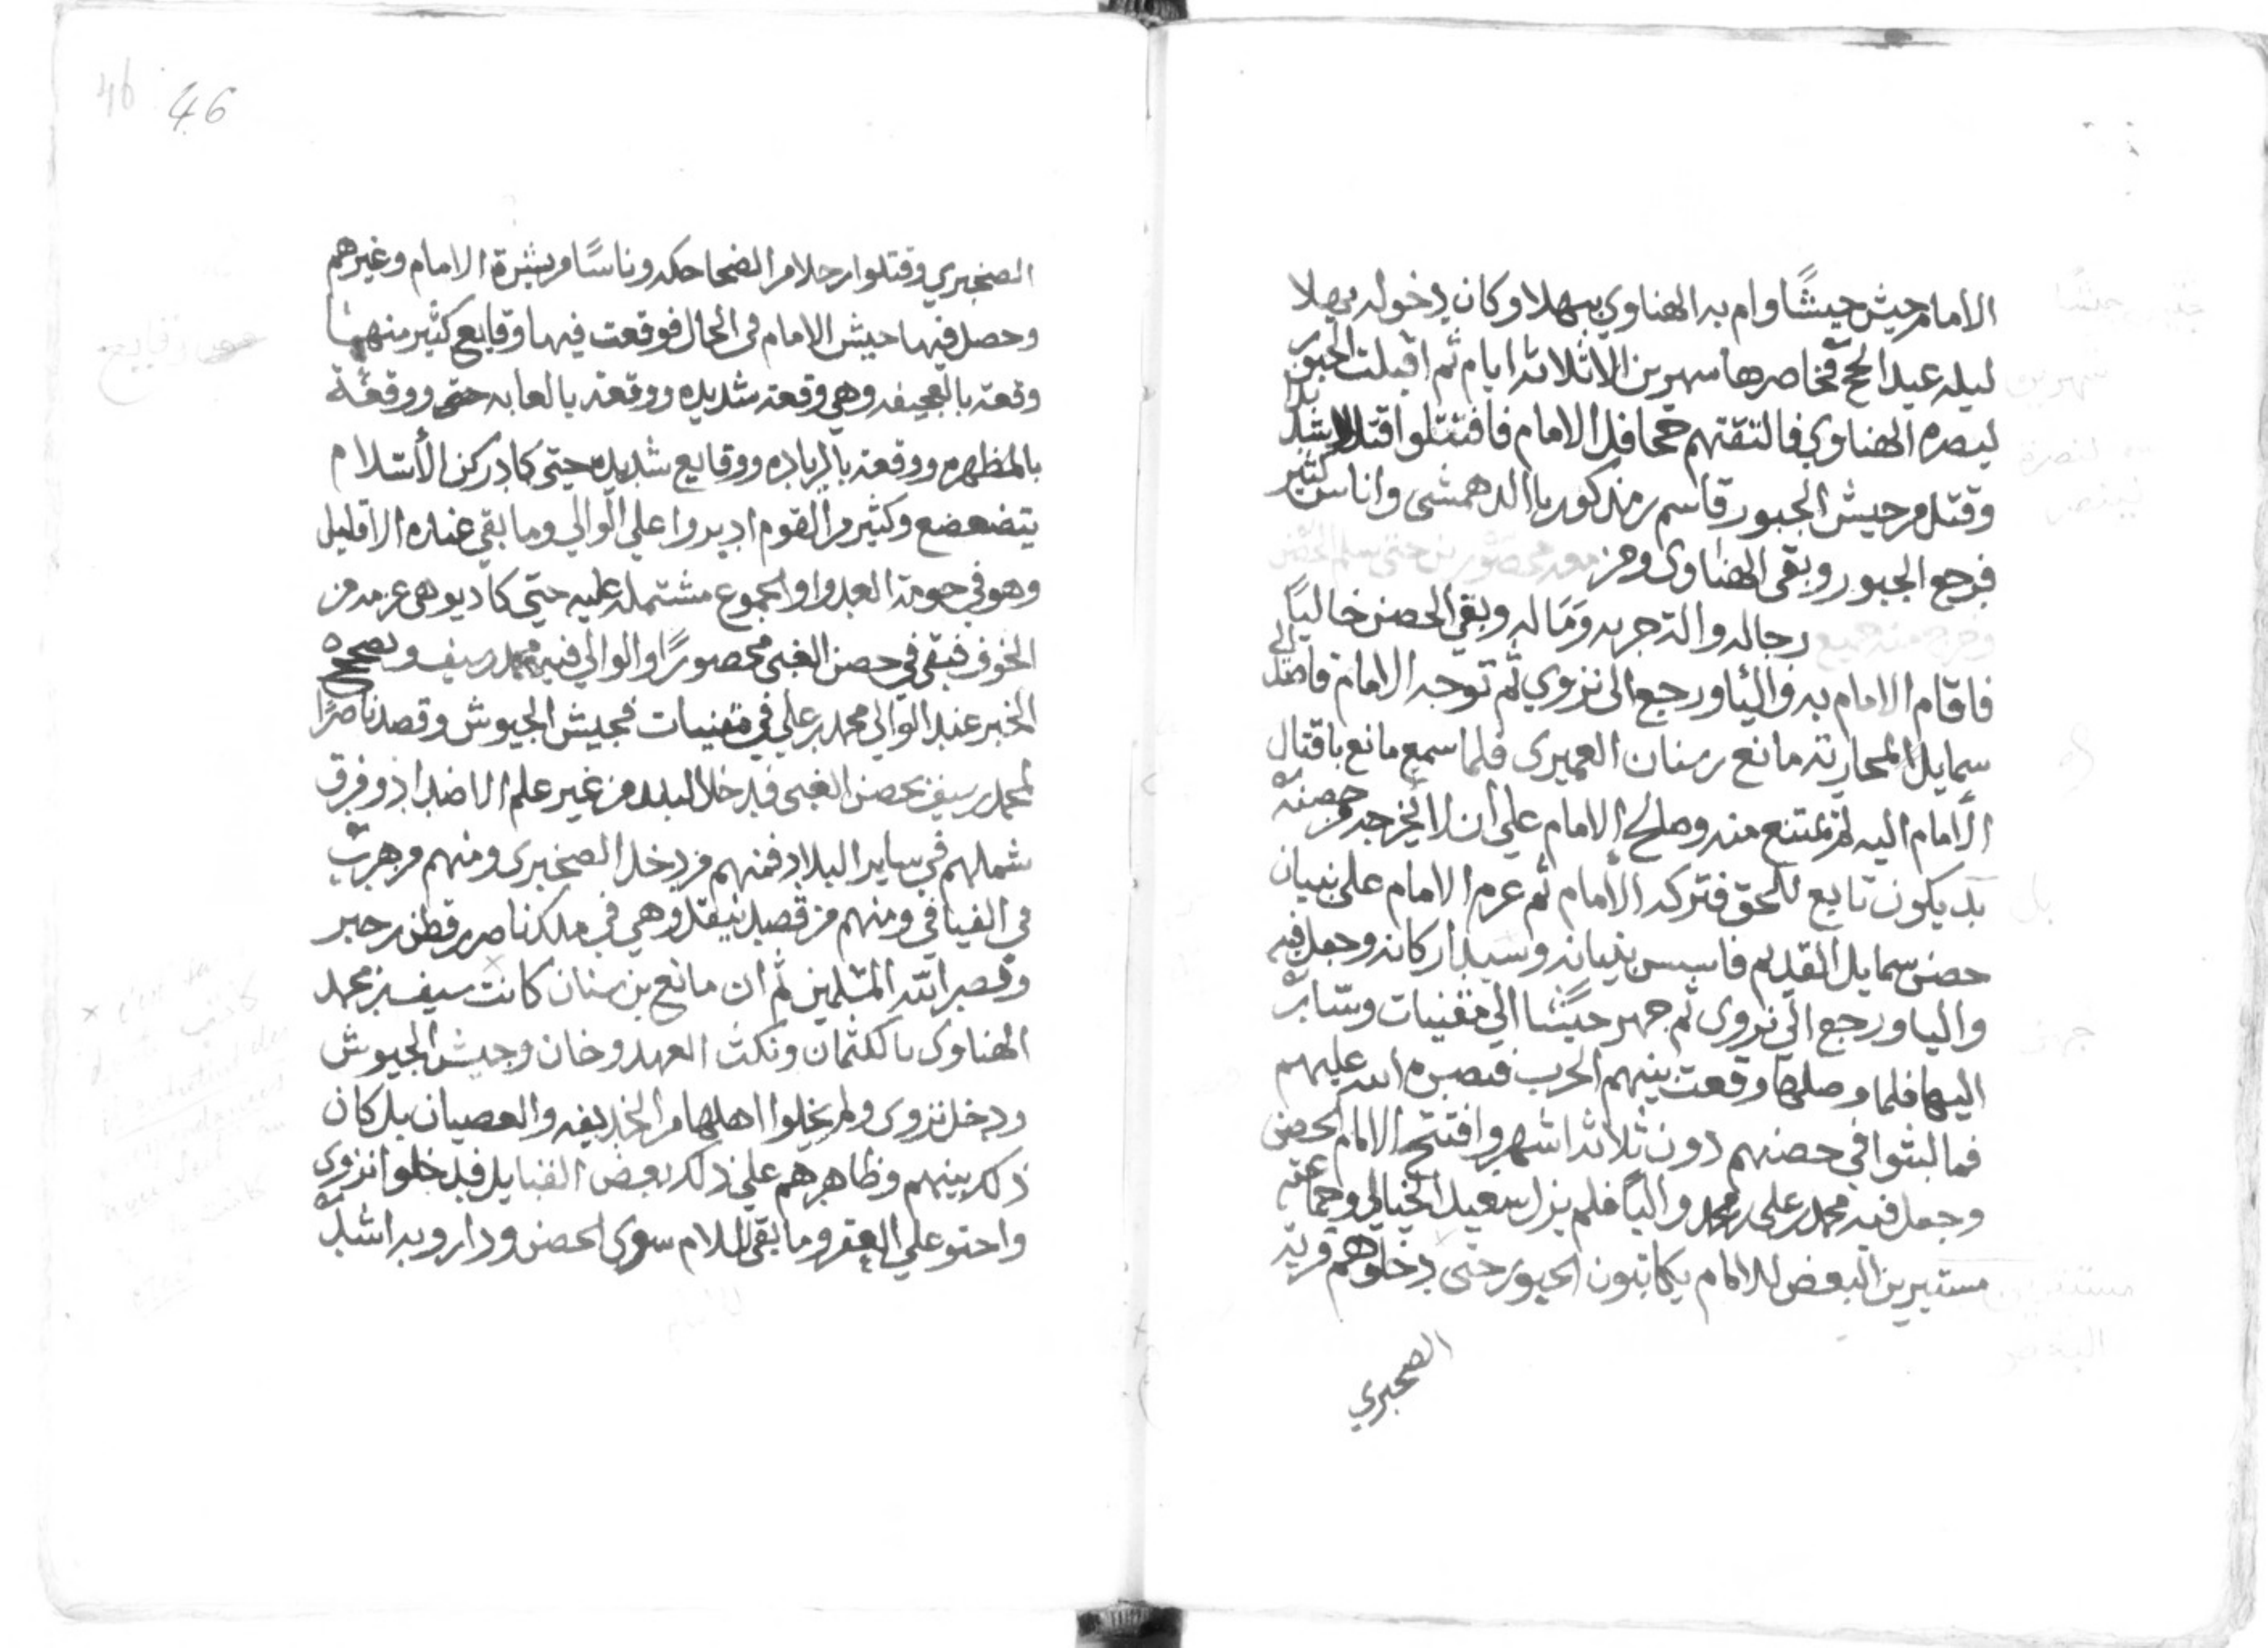 الامام جيش جيشًا وام به الهناوي ببهلا وكان دخوله بهلا
ليله عيد الحج فحاصرها شهرين الا ثلاثة ايام ثم اقبلت الجبور
لنصره الهناوي فالتقتهم جحافل الامام فاقتتلوا قتالا شديدا
وقتل من جيش الجبور قاسم بن مذكور باالدهمشى واناس كثير
فرجع الجبور وبقى الهناوى ومن معه محصورين حتى سلم الحصن
وخرج منه جميع رجاله والة حربه وماله وبقي الحصن خالياً
فاقام الامام به واليا ورجع الى نزوي ثم توجه الامام قاصدا الى
سمايل لمحاربة مانع بن سنان العميرى فلما سمع مانع باقتال
الامام اليه لم يمتنع منه وصالح الامام علي ان لا يخرجه من حصنه
بل يكون تابع للحق فتركه الامام ثم عزم الامام على بنيان
حصن سمايل القديم فاسس بنيانه وشيد اركانه وجعل فيه
واليا ورجع الى نزوى ثم جهز جيشا الى مقنيات وساير
اليها فلما وصلها وقعت بينهم الحرب فنصره الله عليهم
فما لبثوا في حصنهم دون ثلاثة اشهر وافتتح الامام الحصن
وجعل فيه محمد بن على بن محمد والياً فلم يزل سعيد الخيالي وجماعته
مستبرين البعض للامام يكاتبون الجبور حتى دخلوهم قرية
الصخبري
46 46
الصخبري وقتلوا رجلا من الضحاحكه وناسًا من شرة الامام وغيرهم
وحصل فيها جيش الامام في الحال فوقعت فيها وقايع كثير منها
وقعة بالعجيفه وهي وقعة شديده ووقعة بالغابه حتى ووقعة
بالمظهره ووقعة بالزياده ووقايع شديده حتى كاد ركن الأسلام
يتضعضع وكثير من القوم ادبروا علي الوالي وما بقي عنده الا قليل
وهو في حومة العدوا والجموع مشتمله عليه حتي كاد يوهي عزمه من
الخوف فبقي في حصن الغبي محصورًا والوالي فيه محمد بن سيف وصحح
الخبر عند الوالي محمد بن علي في مقنيات فجيش الجيوش وقصد ناصرًا
لمحمد بن سيف بحصن الغبي فدخل البلد من غير علم الاضداد وفرق
شملهم في ساير البلاد فمنهم من دخل الصخبرى ومنهم من هرب
في الفيافي ومنهم من قصد ينقل وهي في ملك ناصر بن قطن بن جبر
ونصر الله المسلمين ثم ان مانع بن سنان كانت سيف بن محمد
الهناوى بالكتمان ونكث العهد وخان وجيش الجيوش
ودخل نزوى ولم يخلوا اهلها من الخديفه والعصيان بل كان
ذلك بينهم وظاهرهم علي ذلك بعض القبايل فدخلوا نزوى
واحتو علي العقر وما بقي للامام سوى الحصن ودارو به اشد